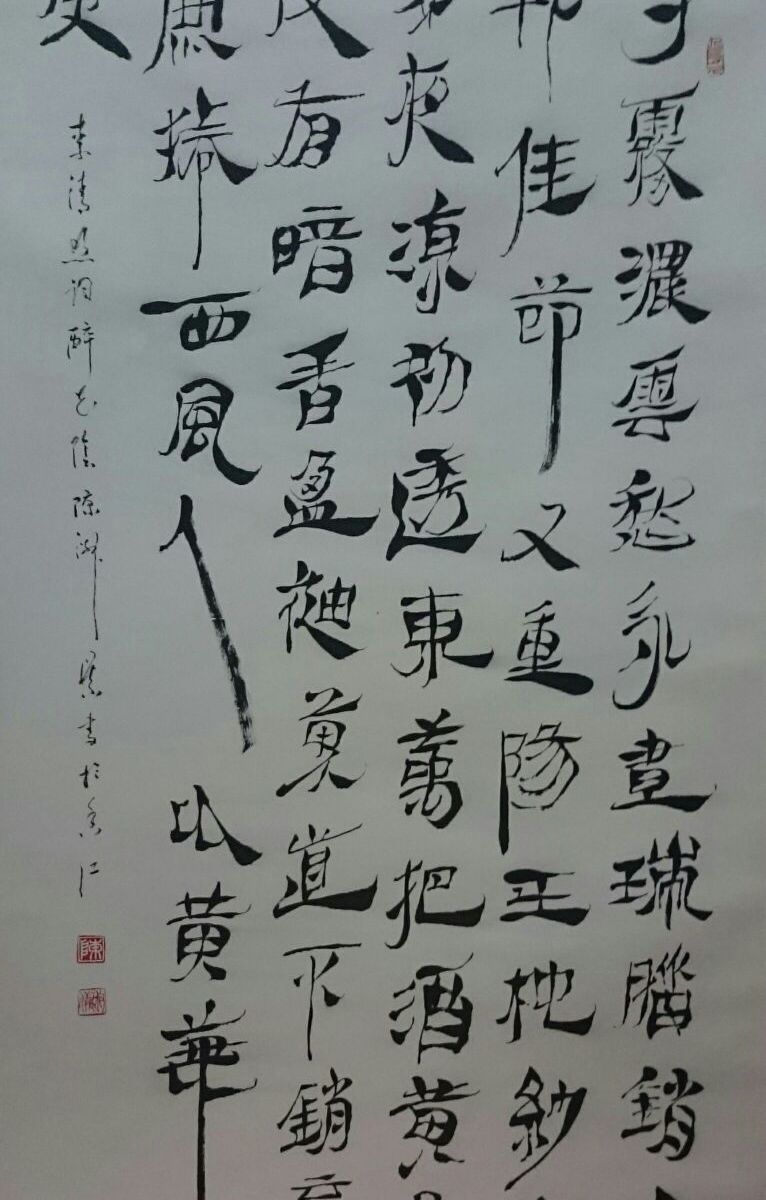 霧濃雲愁永晝瑞腦銷
佳節又重陽玉枕紗
夜涼初透東篱把酒黃
有暗香盈袖莫道不銷
簾捲西風人比黃華
李清照詞醉花陰陳書於香江
陳